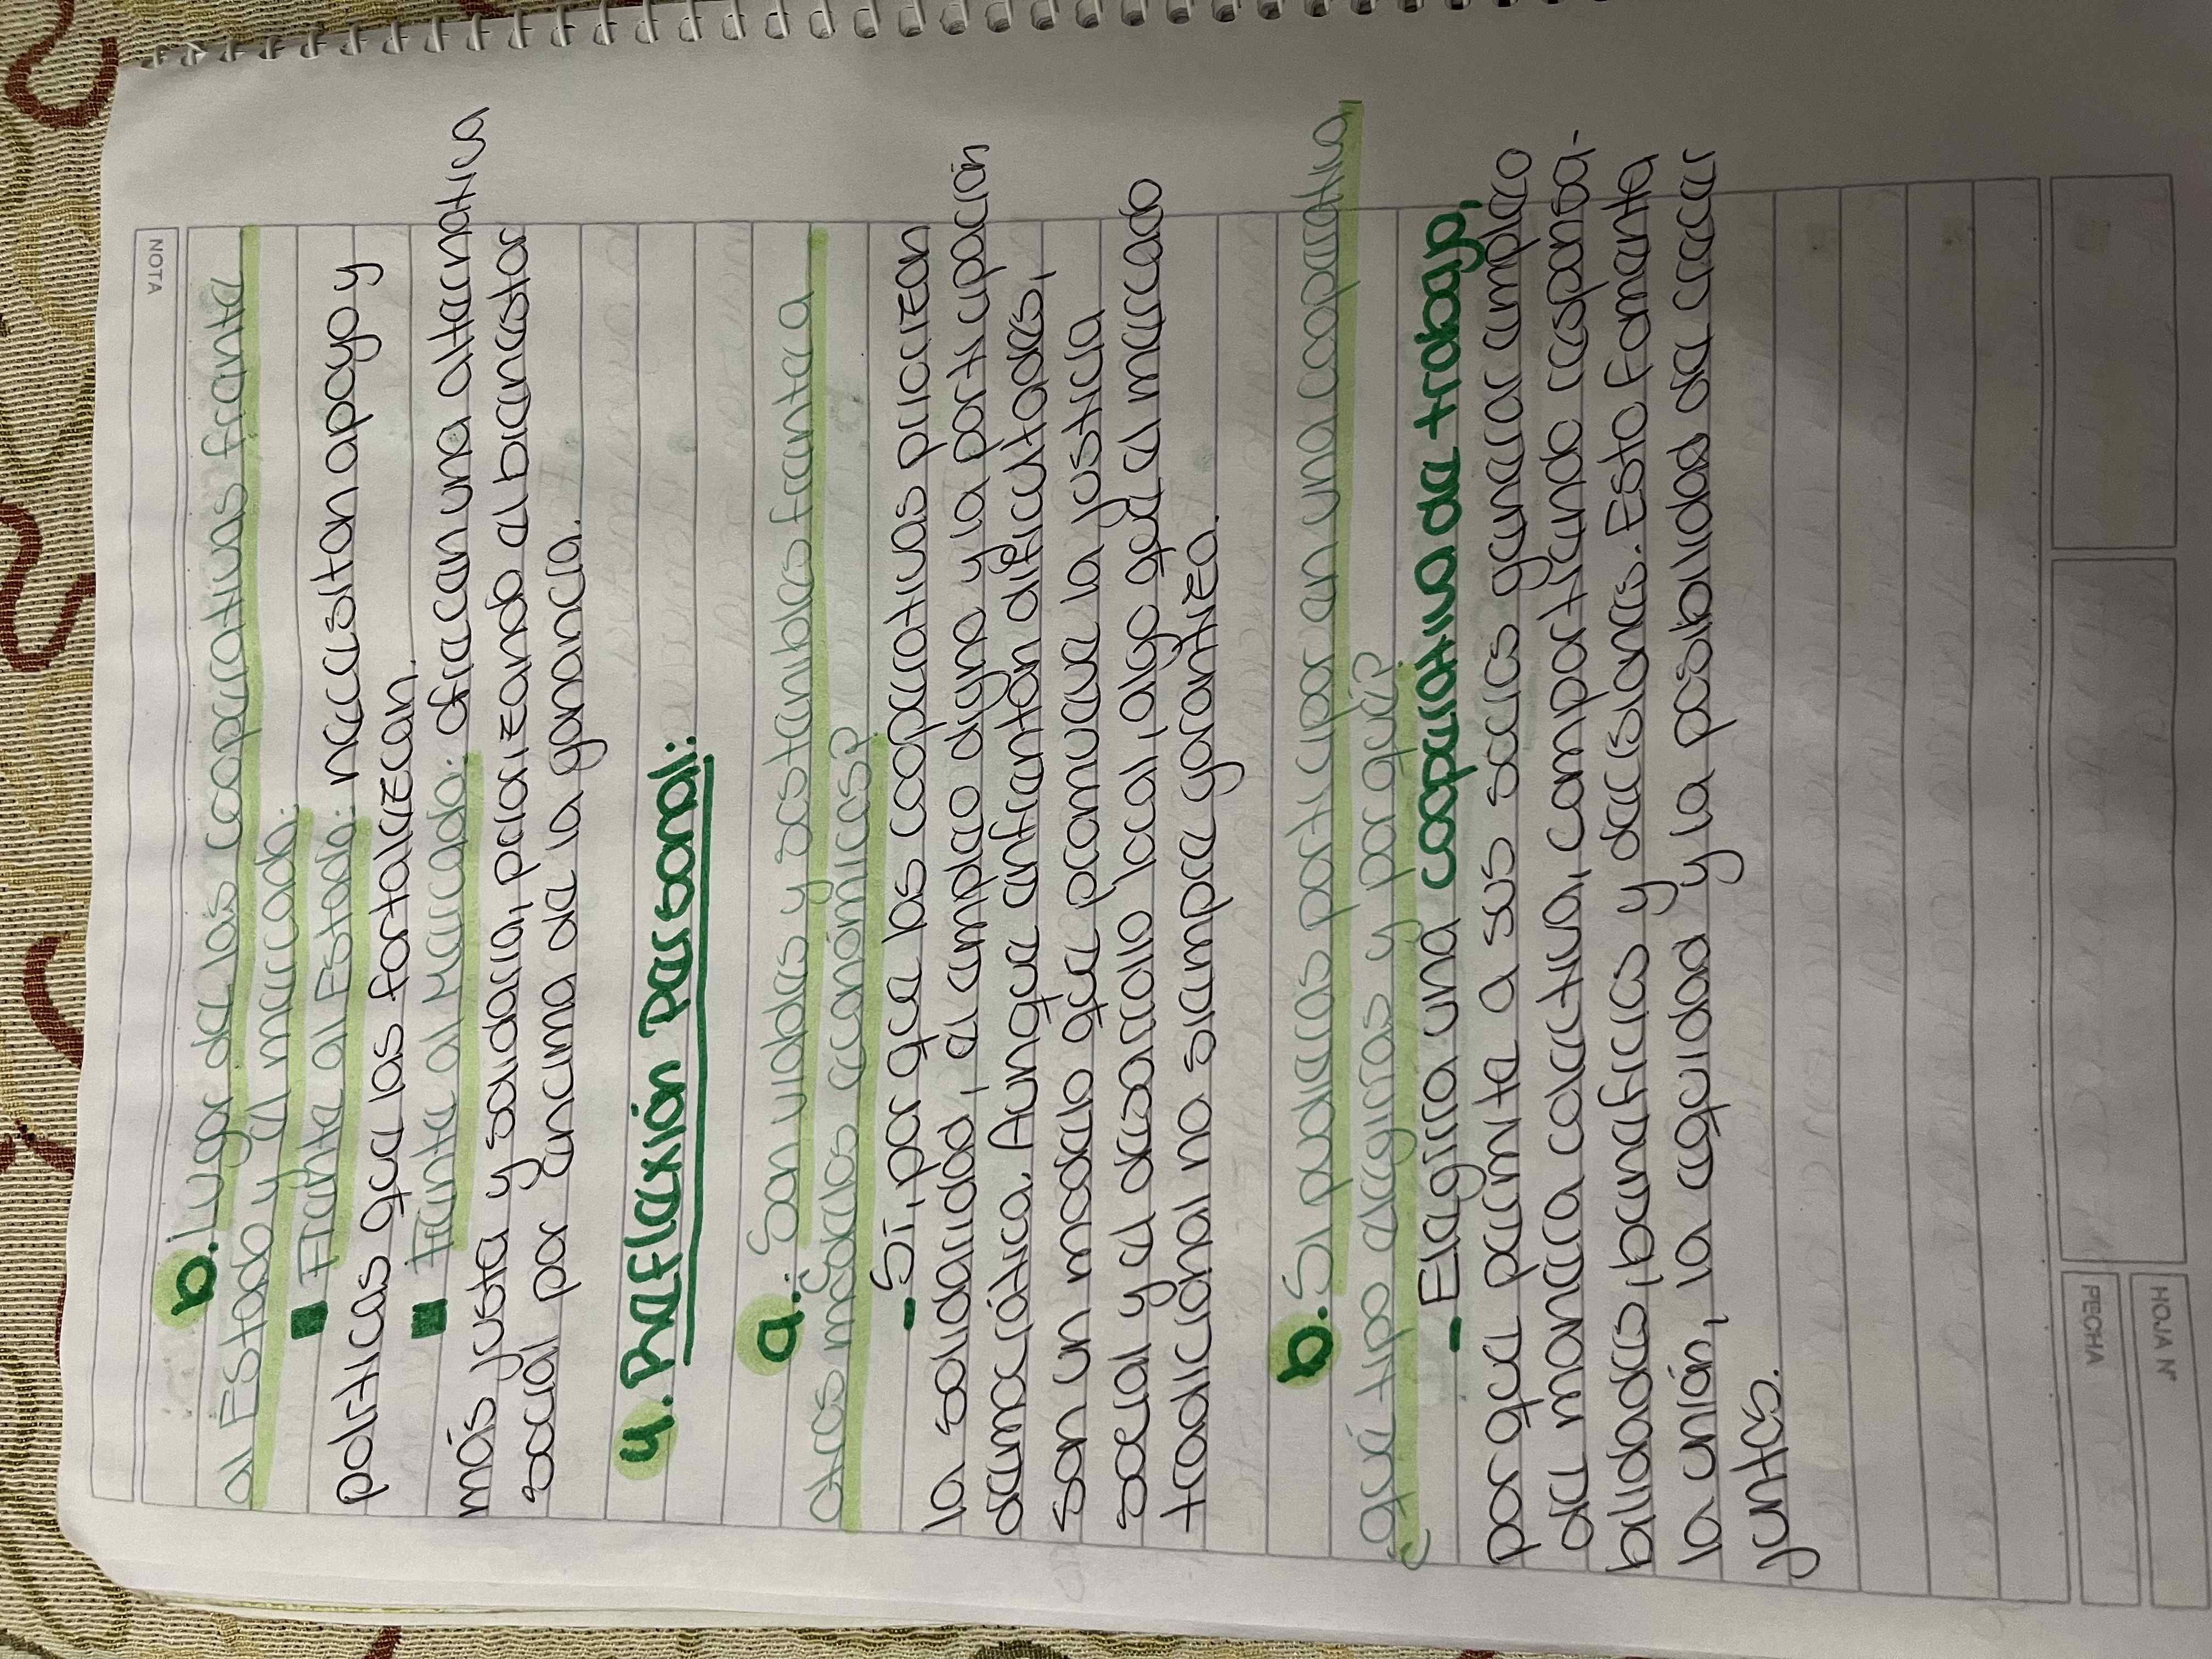 NOTA
b. Lugar de las cooperativas frente
al Estado y el mercado:
Frente al Estado: necesitan apoyo y
políticas que las fortalezcan.
Frente al Mercado: ofrecen una alternativa
más justa y solidaria, priorizando el bienestar
social por encima de la ganancia.
4. Reflexión Personal:
a. ¿Son viables y sostenibles frente a
otros modelos económicos?
- Sí, por que las cooperativas priorizan
la solidaridad, el empleo digno y la participación
democrática. Aunque enfrentan dificultades,
son un modelo que promueve la justicia
social y el desarrollo local, algo que el mercado
tradicional no siempre garantiza.
b. Si pudieras participar en una cooperativa
¿qué tipo elegirías y por qué?
- Elegiría una cooperativa de trabajo,
por que permite a sus socios generar empleo
de manera colectiva, compartiendo responsa-
bilidades, beneficios y decisiones. Esto fomenta
la unión, la equidad y la posibilidad de crecer
juntos.
FECHA
HOJA Nº